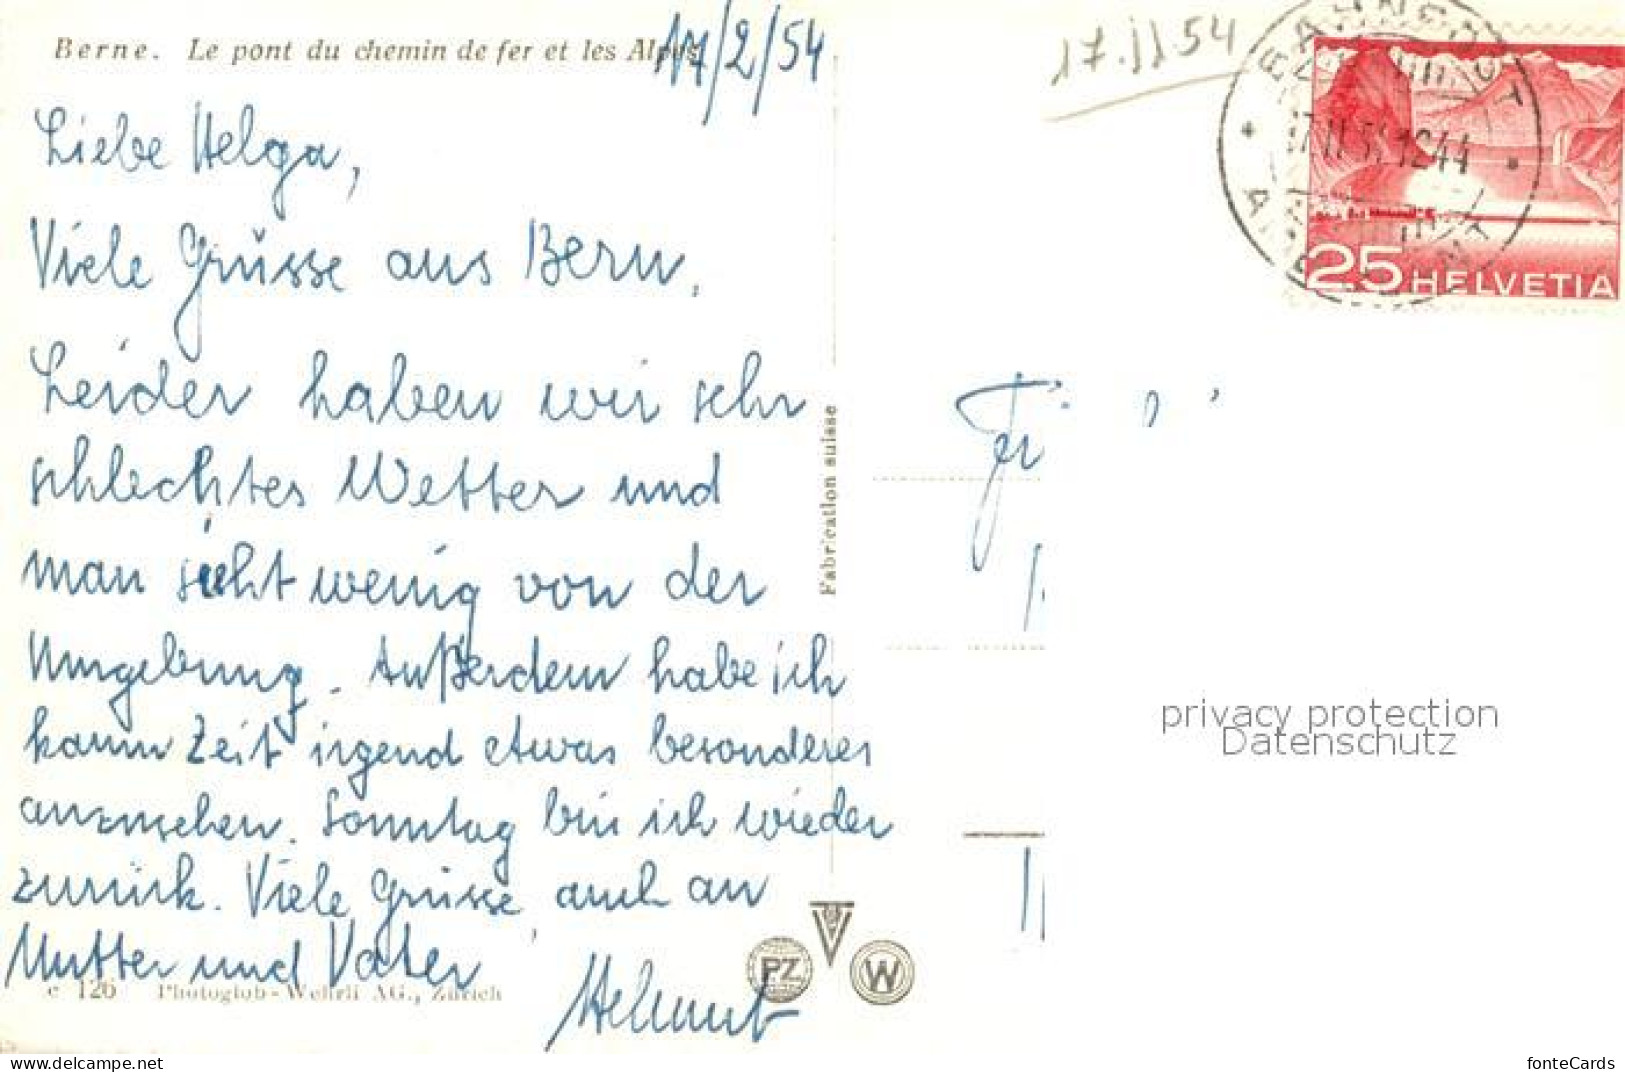 Berne. Le pont du chemin de fer et les Alpes
17/2/54
17.II.54
25 HELVETIA
Liebe Helga,
Viele Grüsse aus Bern.
Leider haben wir sehr
schlechtes Wetter und
man sieht wenig von der
Umgebung. Außerdem habe ich
kaum Zeit irgend etwas besonderes
anzusehen. Sonntag bin ich wieder
zurück. Viele Grüsse auch an
Mutter und Vater
Helmut
Fabrication suisse
PZ
W
c 126 Photoglob-Wehrli AG., Zürich
privacy protection
Datenschutz
fonteCards